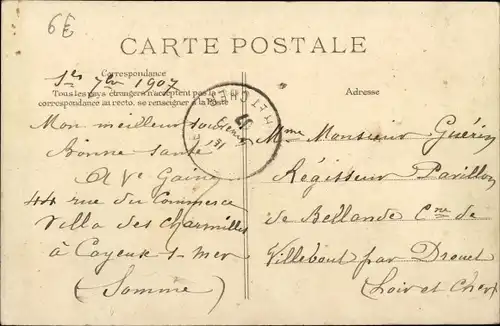 6E
CARTE POSTALE
Correspondance
Tous les pays étrangers n'acceptent pas la
correspondance au recto, se renseigner à la Poste
Adresse
1er 7bre 1907
Mon meilleur souvenir
Bonne santé
A Ve Gaine
44 rue du Commerce
Villa des Charmilles
à Cayeux-s-mer
(Somme)
Mme Monsieur Guérin
Régisseur Pavillon
de Bellande Cne de
Villebout par Droué
(Loir et Cher)